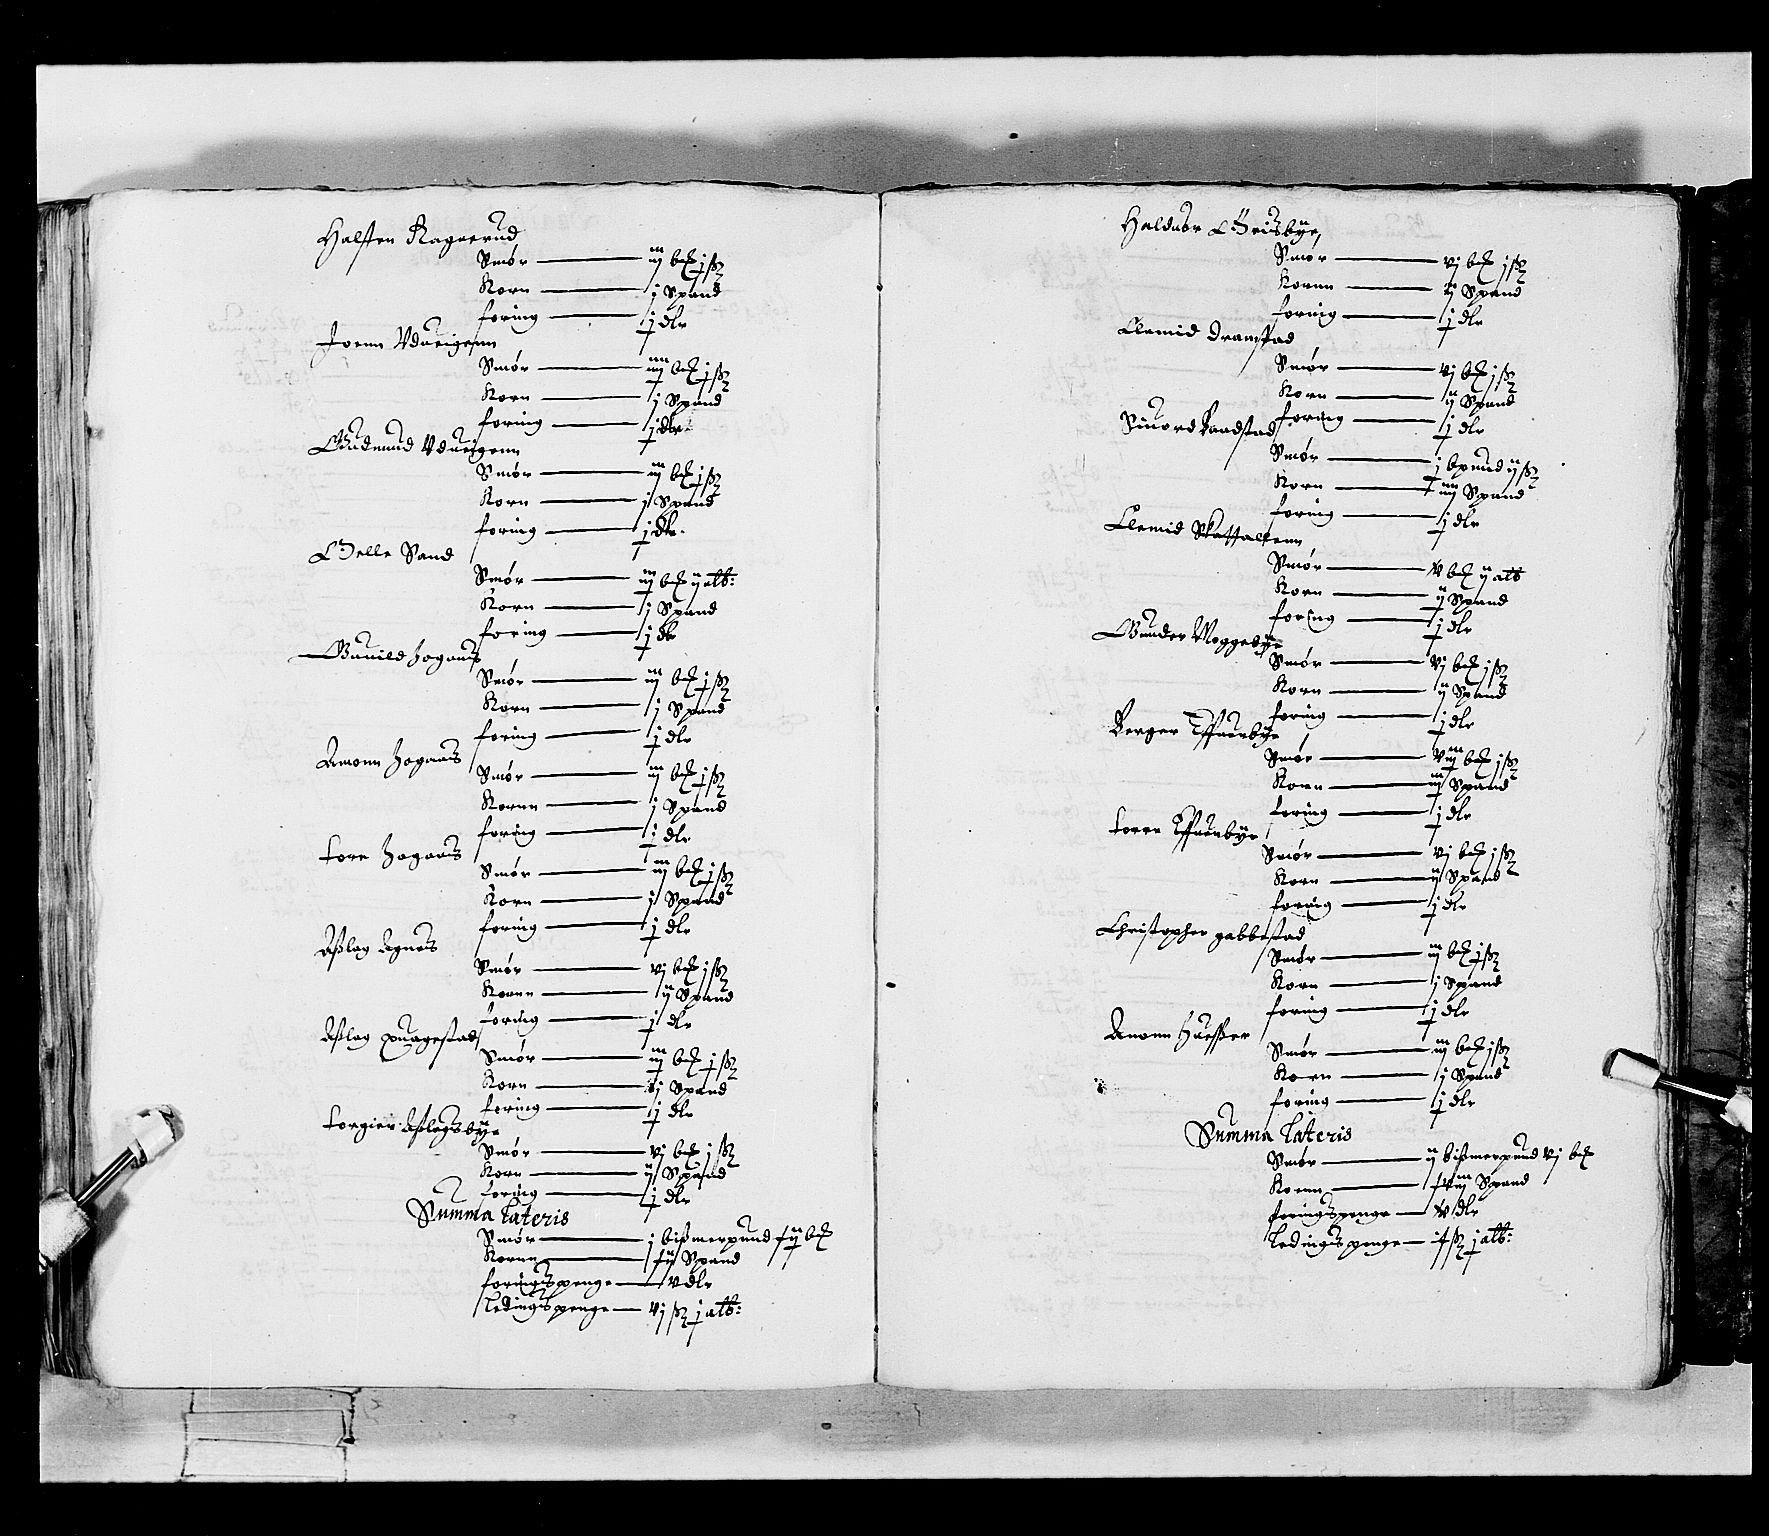 Halsten Ragnerud
Smør — iij bℓ j ß
Korn — j Spand
foring — j dlr
Joenn Vdueigenn
Smør — iiij bℓ j ß
Korn — j Spand
foring — j dlr
Gudmund Vdueigenn
Smør — iij bℓ j ß
Korn — j Spand
foring — j dlr
Helle Sand
Smør — iij bℓ ij alb:
Korn — j Spand
foring — j dlr
Gunild Hogans
Smør — iij bℓ j ß
Korn — j Spand
foring — j dlr
Amonn Hogans
Smør — iij bℓ j ß
Kornn — j Spand
foring — j dlr
Tore Hogans
Smør — iij bℓ j ß
Korn — j Spand
foring — j dlr
Aslag Agnes
Smør — vj bℓ j ß
Kornn — ij Spand
foring — j dlr
Aslag
Smør — iij bℓ j ß
Korn — j Spand
foring — j dlr
Torgier Aslagsbye
Smør — vj bℓ j ß
Korn — ij Spand
foring — j dlr
Summa Lateris
Smør — j bißmerpund bℓ
Kornn — Spand
foringspenge — v dlr
Ledingspenge — vj ß j alb:
Halduor
Smør — vj bℓ j ß
Kornn — ij Spand
foring — j dlr
Clemid Dramstad
Smør — vj bℓ j ß
Korn — ij Spand
foring — j dlr
Siuord Raadstad
Smør — j bpund ij ß
Korn — iiij Spand
foring — j dlr
Clemid Skattallenn
Smør — v bℓ ij alb
Korn — ij Spand
foring — j dlr
Gunder Moggebye
Smør — vj bℓ j ß
Korn — ij Spand
foring — j dlr
Berger
Smør — viij bℓ j ß
Korn — iij Spand
foring — j dlr
Torer
Smør — vj bℓ j ß
Korn — ij Spand
foring — j dlr
Christopher gabbestad
Smør — iij bℓ j ß
Korn — j Spand
foring — j dlr
Amonn
Smør — iij bℓ j ß
Korn — j Spand
foring — j dlr
Summa Lateris
Smør — ij bißmerpund vj bℓ
Kornn — Spand
foringspenge — dlr
Ledingspenge — ß j alb: